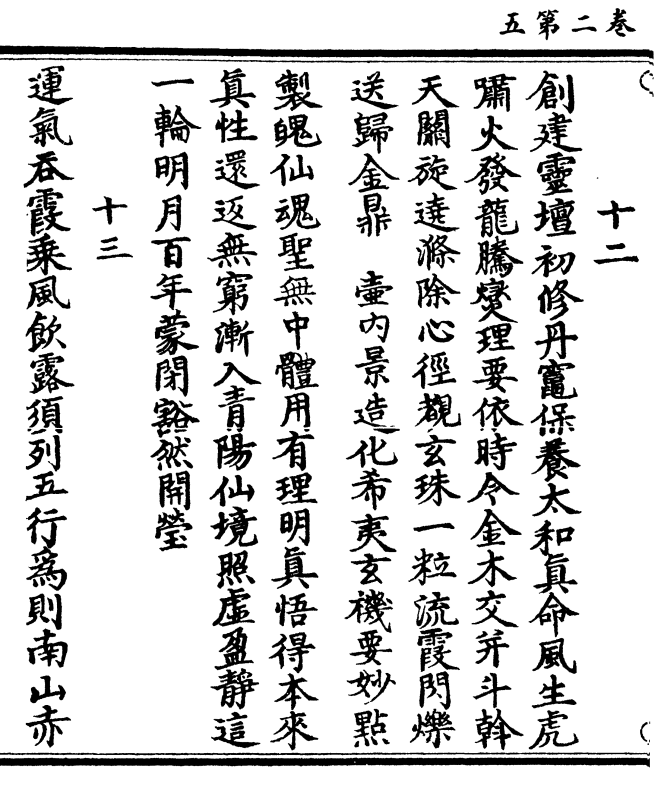 五第二卷
十二
創建靈壇初修丹竈保養太和眞命風生虎
嘯火發龍騰爕理要依時令金木交并斗斡
天關旋遶滌除心徑覩玄珠一粒流霞閃爍
送歸金鼎　壷内景造化希夷玄機要妙點
製魄仙魂聖無中體用有理明眞悟得本來
眞性還返無窮漸入青陽仙境照虛盈靜這
一輪明月百年蒙閉豁然開瑩
十三
運氣吞霞乘風飲露須列五行爲則南山赤